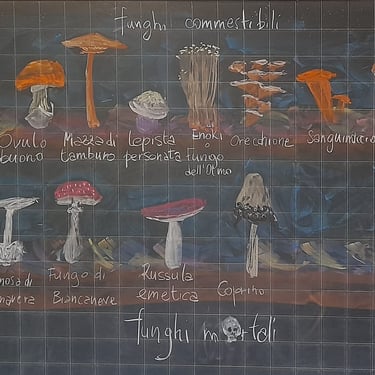 funghi commestibili
Ovulo
buono
Mazza di
tamburo
Lepista
personata
Enoki
o
Fungo
dell'Olmo
Orecchione
Sanguinaccio
Fungo di
Biancaneve
Russula
emetica
Coprino
funghi mortali